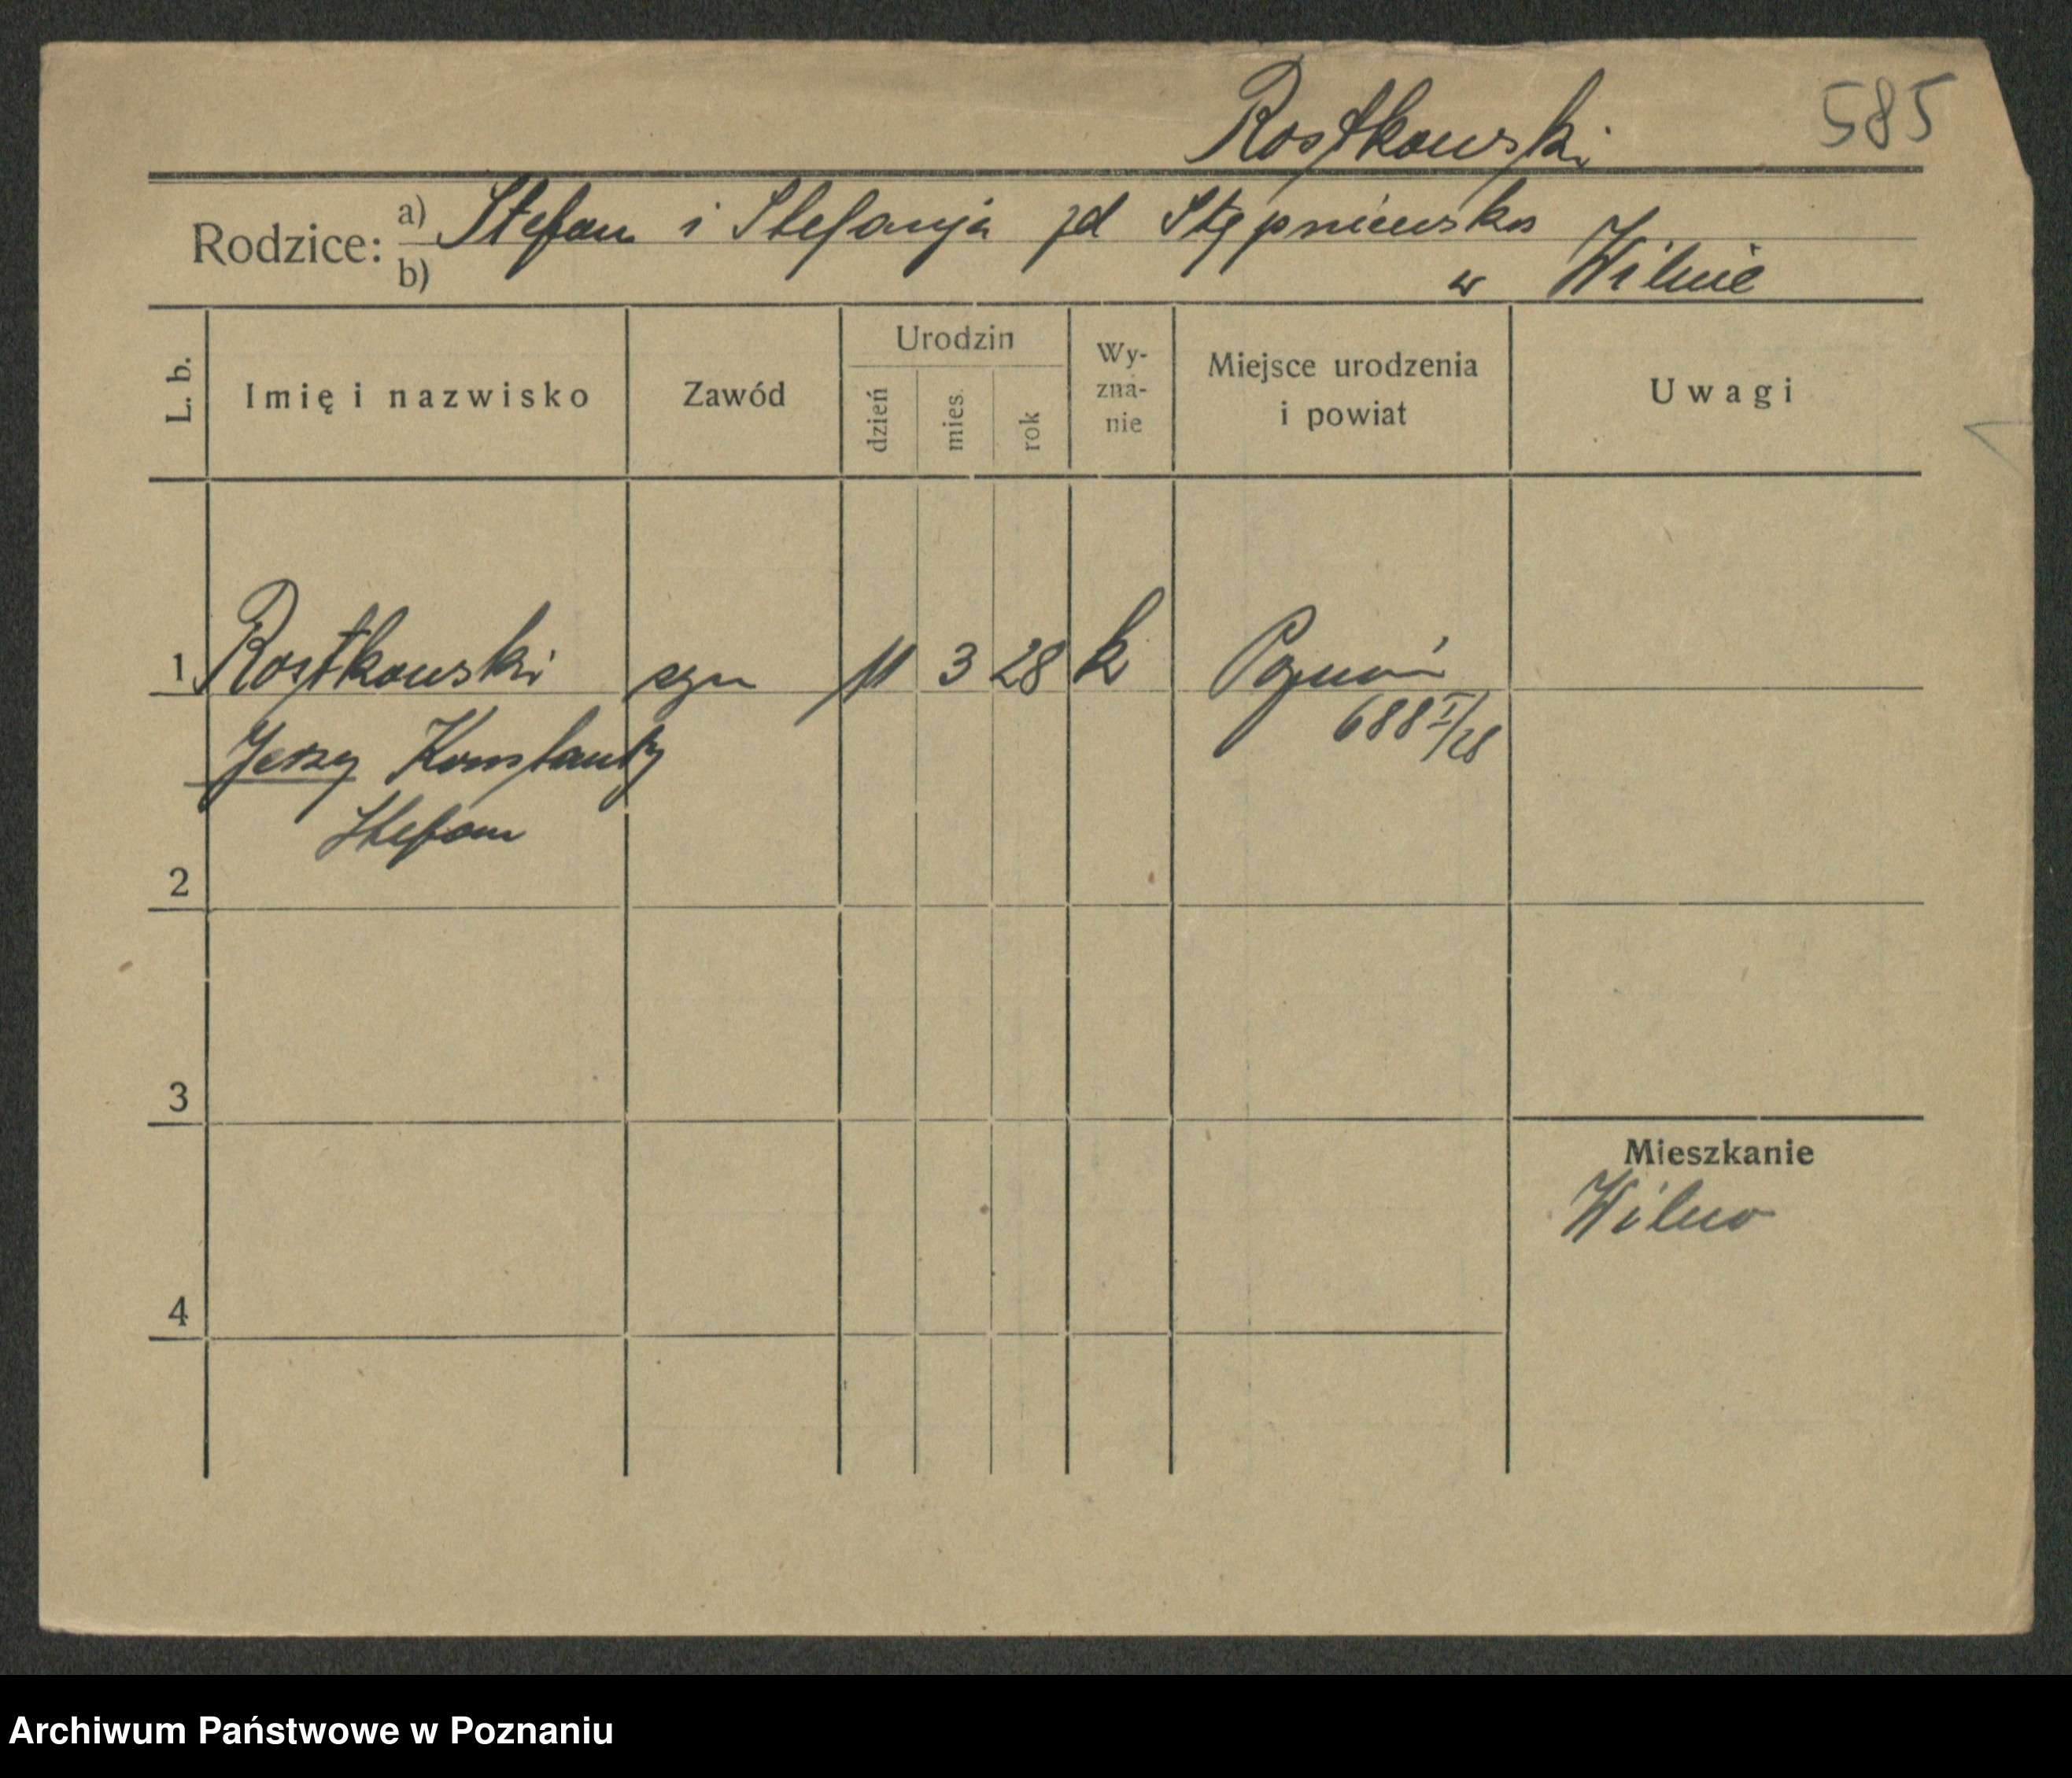 Rostkowski 585
Rodzice: a) Stefan i Stefanja zd Stępniewska
b) w Wilnie
L. b. Imię i nazwisko Zawód Urodzin dzień mies. rok Wy-zna-nie Miejsce urodzenia i powiat Uwagi
1 Rostkowski syn 11 3 28 k Poznań
688 I/28
Jerzy Konstanty
Stefan
2
3
Mieszkanie
Wilno
4
Archiwum Państwowe w Poznaniu